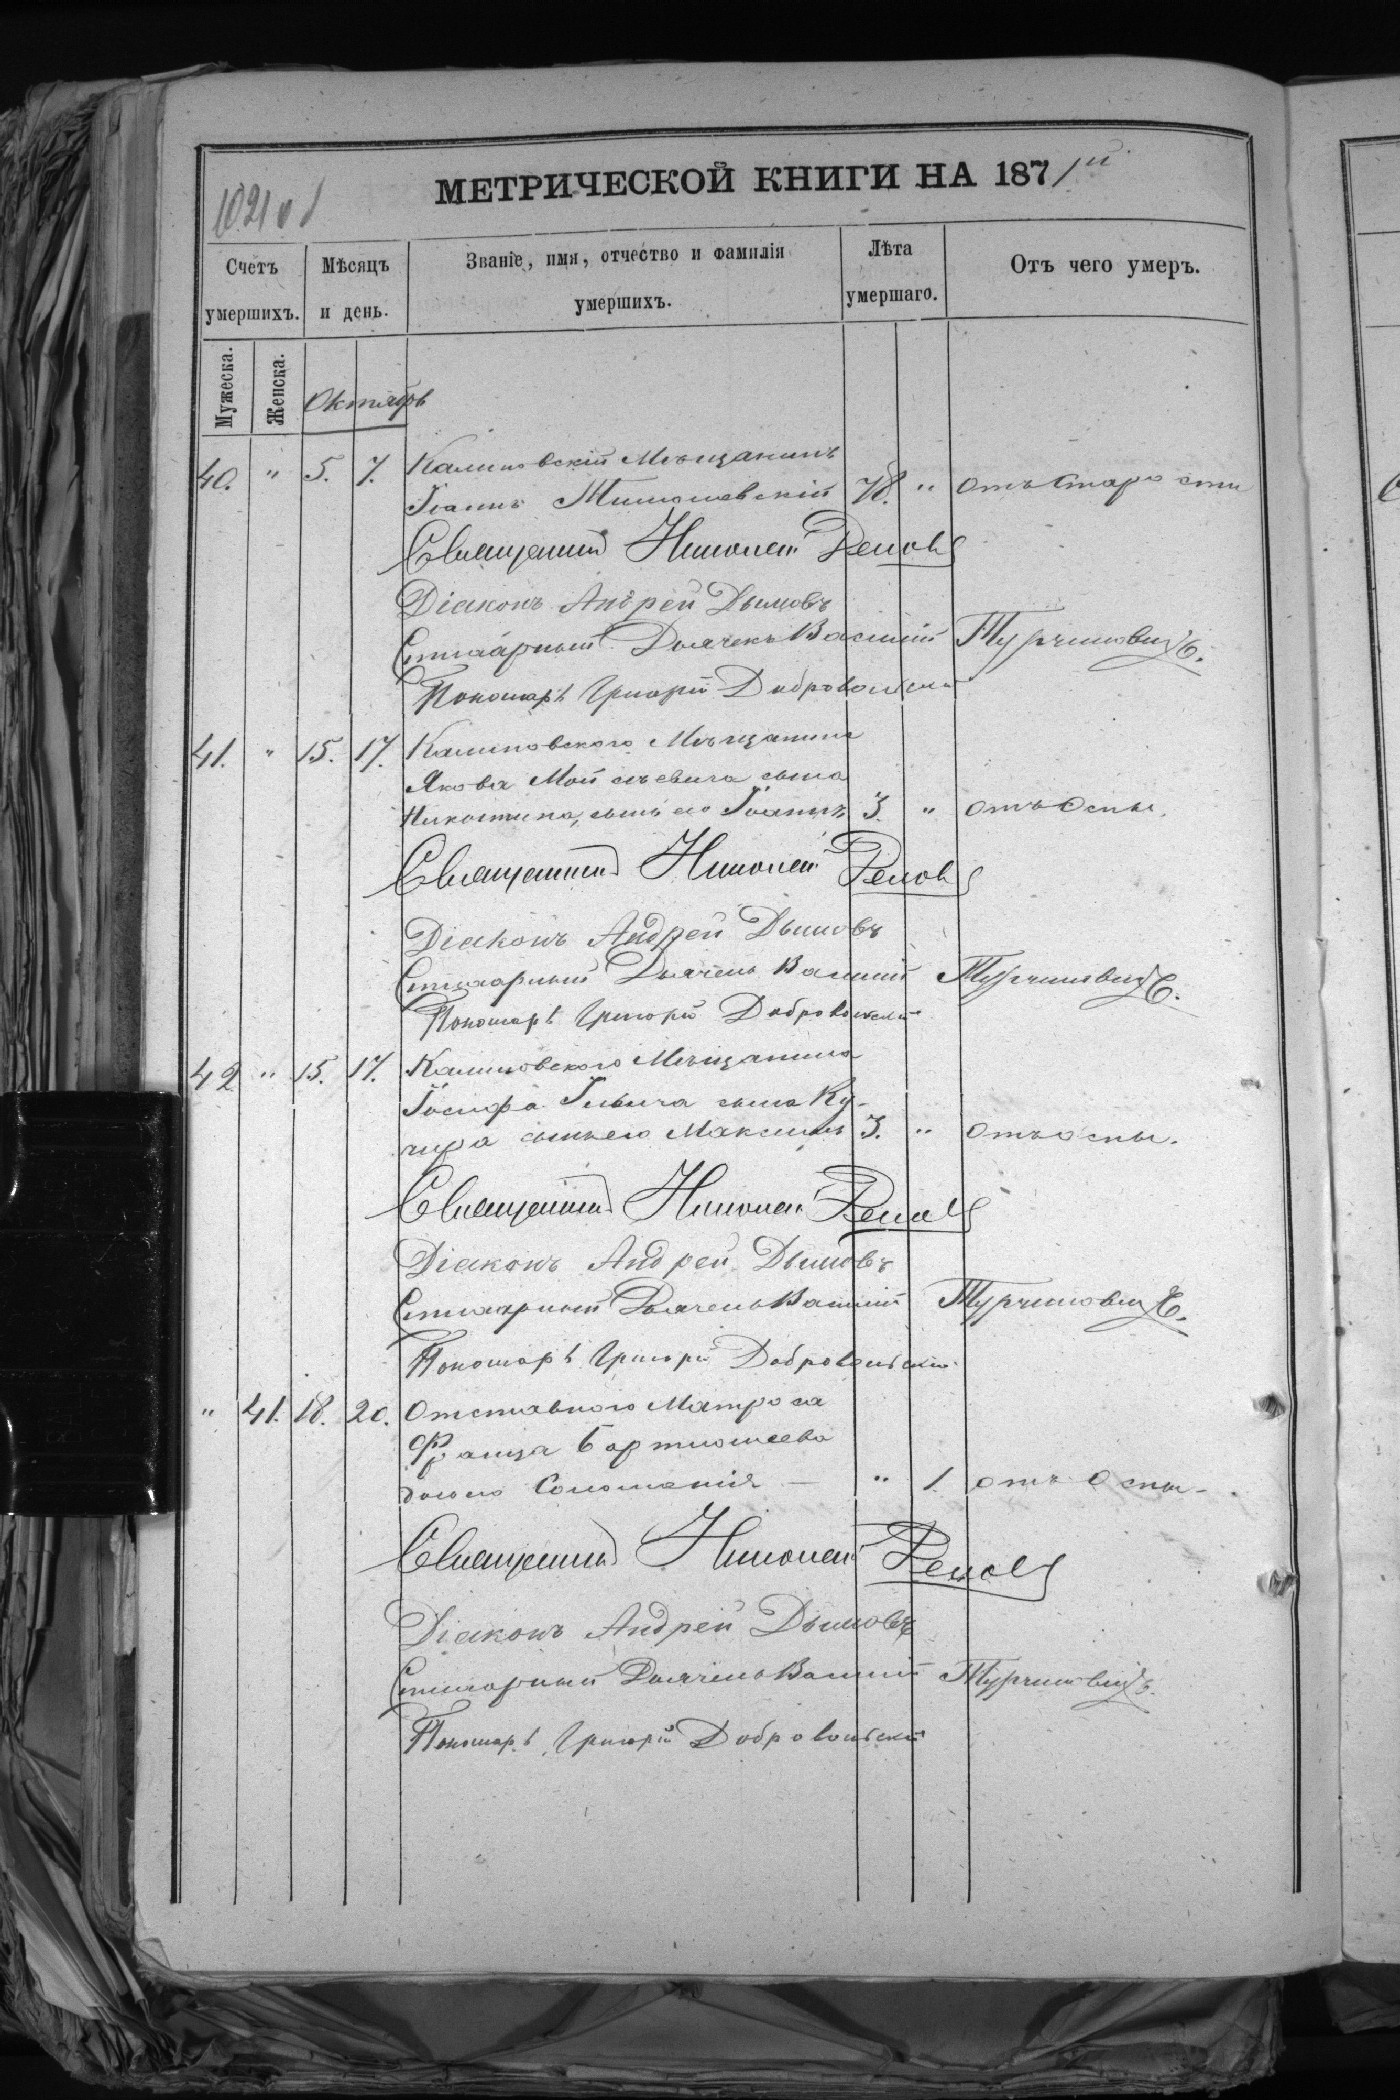 МЕТРИЧЕСКОЙ КНИГИ НА 1871й
1021 об
Счетъ умершихъ.
Мѣсяцъ и день.
Званіе, имя, отчество и фамилія умершихъ.
Лѣта умершаго.
Отъ чего умеръ.
Мужеска.
Женска.
Октябрь
40. " 5. 7. Калиновскій Мѣщанинъ
Іоаннъ Тимошевскій 78. " отъ старости
Священникъ Николай
Діаконъ Андрей Дымовъ
Стихарный Дьячекъ Василій Турчиновичъ.
Пономарь Григорій Добровольскій
41. " 15. 17. Калиновского Мѣщанина
Якова Мойсѣевича сына
сынъ его Іоаннъ 3. " отъ Оспы.
Священникъ Николай
Діаконъ Андрей Дымовъ
Стихарный Дьячекъ Василій Турчиновичъ.
Пономарь Григорій Добровольскій
42 " 15. 17. Калиновского Мѣщанина
Іосифа Ильича сына Ку-
чера сынъ его Максимъ 3. " отъ оспы.
Священникъ Николай
Діаконъ Андрей Дымовъ
Стихарный Дьячекъ Василій Турчиновичъ.
Пономарь Григорій Добровольскій
" 41. 18. 20. Отставного Матроса
Франца Бартошеева
дочь Соломанія — " 1. отъ Оспы.
Священникъ Николай
Діаконъ Андрей Дымовъ
Стихарный Дьячекъ Василій Турчиновичъ.
Пономарь Григорій Добровольскій